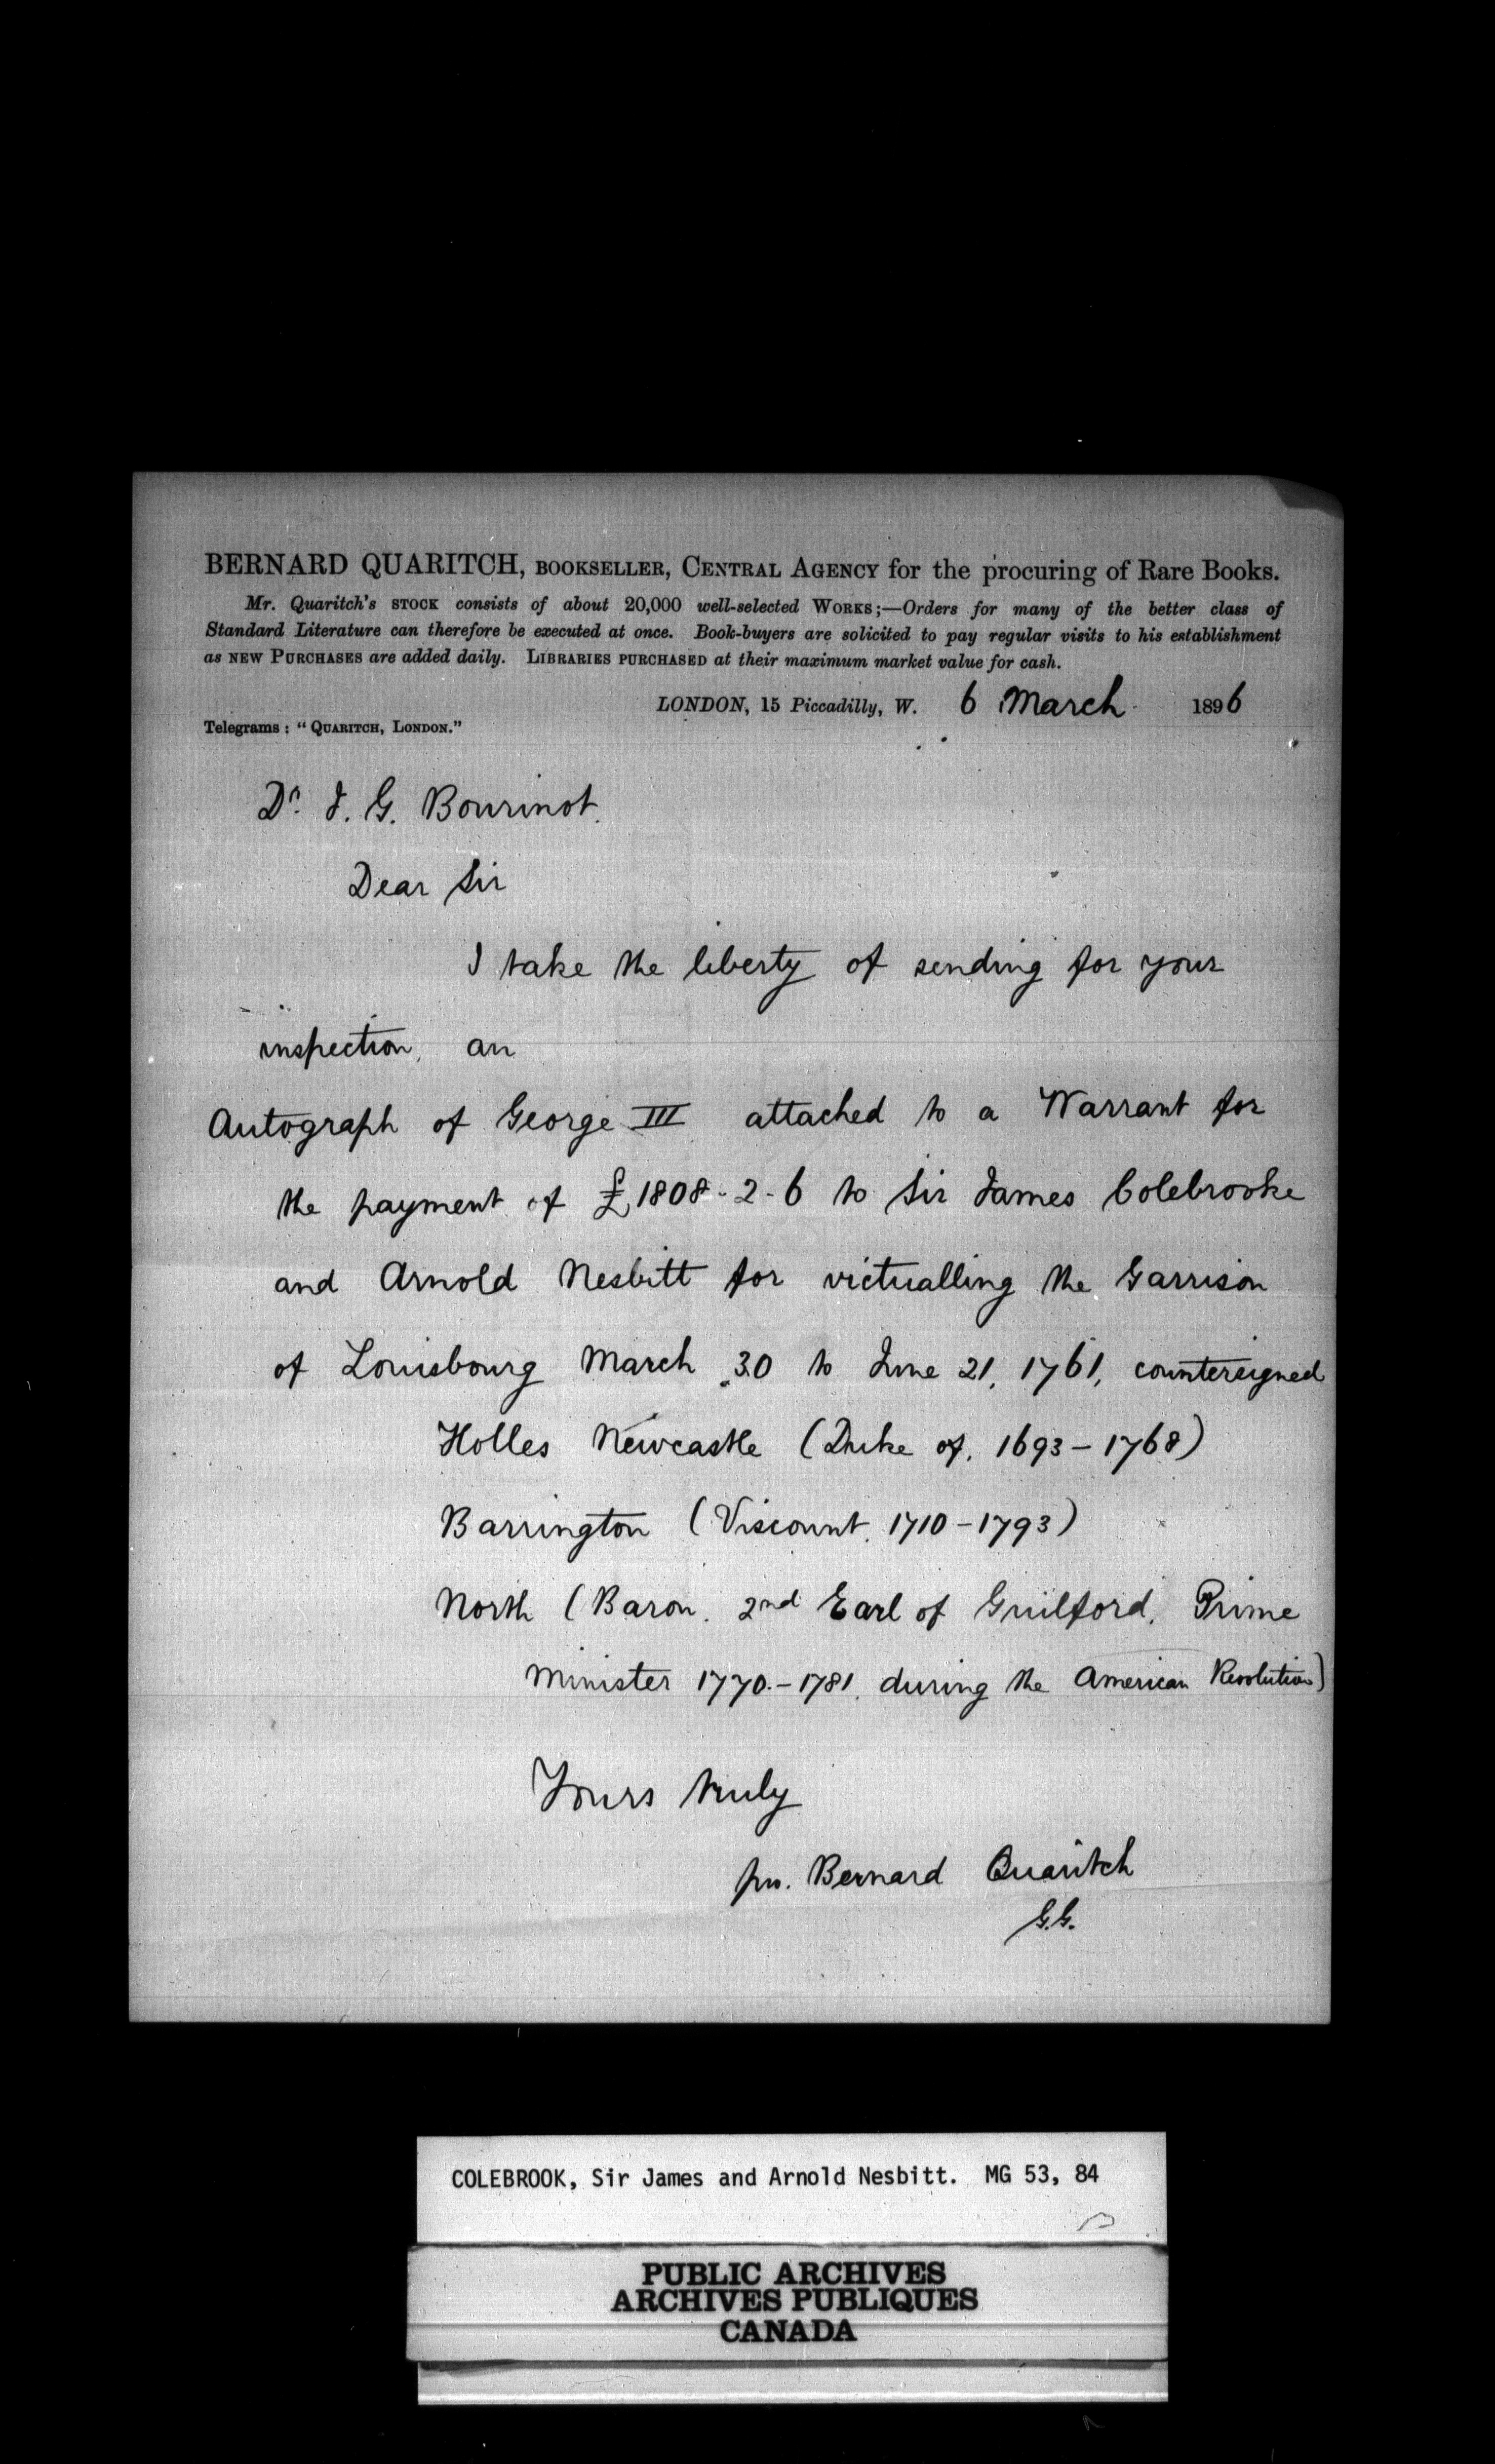 BERNARD QUARITCH, BOOKSELLER, CENTRAL AGENCY for the procuring of Rare Books.
Mr. Quaritch's STOCK consists of about 20,000 well-selected WORKS;—Orders for many of the better class of
Standard Literature can therefore be executed at once. Book-buyers are solicited to pay regular visits to his establishment
as NEW PURCHASES are added daily. LIBRARIES PURCHASED at their maximum market value for cash.
LONDON, 15 Piccadilly, W. 6 March 1896
Telegrams: "QUARITCH, LONDON."
Dr. J. G. Bourinot.
Dear Sir
I take the liberty of sending for your
inspection, an
Autograph of George III attached to a Warrant for
the payment of £1808-2-6 to Sir James Colebrooke
and Arnold Nesbitt for victualling the Garrison
of Louisbourg March 30 to June 21, 1761, countersigned
Holles Newcastle (Duke of, 1693-1768)
Barrington (Viscount, 1710-1793)
North (Baron, 2nd Earl of Guilford, Prime
Minister 1770-1781, during the American Revolution)
Yours truly
pr. Bernard Quaritch
G.G.
COLEBROOK, Sir James and Arnold Nesbitt. MG 53, 84
PUBLIC ARCHIVES
ARCHIVES PUBLIQUES
CANADA